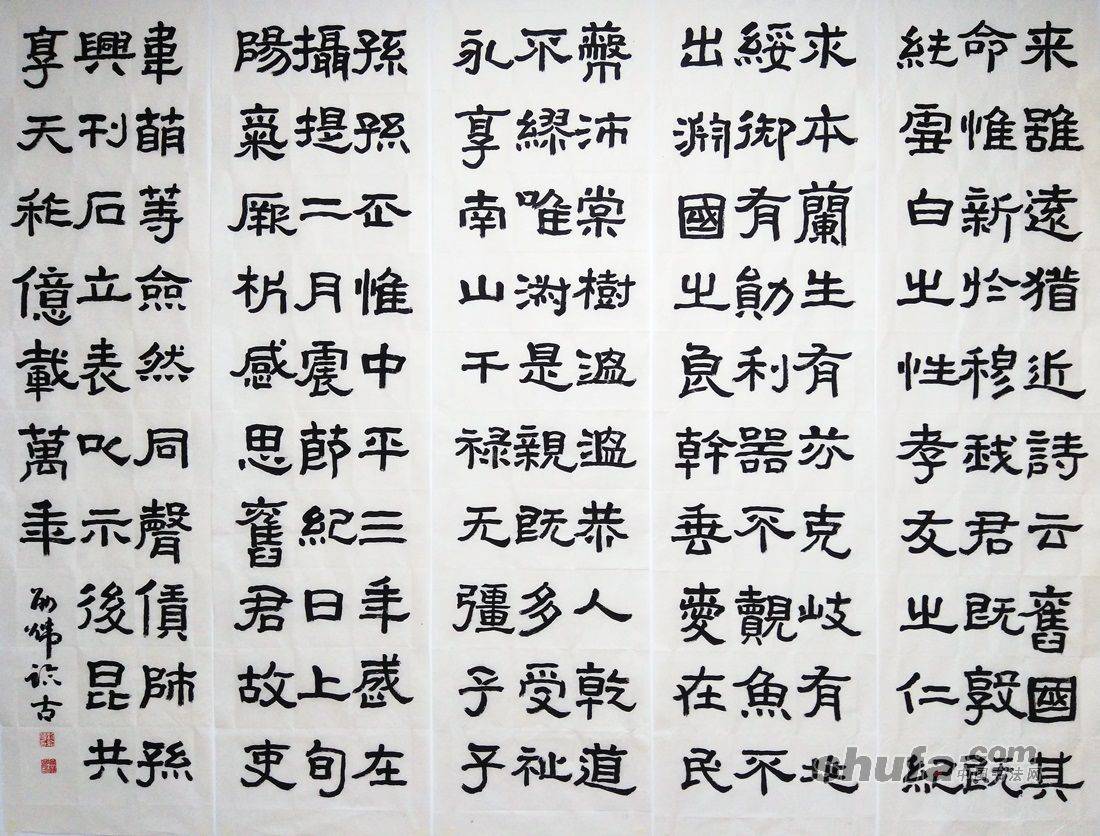 来雖遠猶近詩云舊國其
命惟新於穆我君既敦既
純雲白之性孝友之仁紀
求本蘭生有芬克岐有兆
綏御有勛利器不覿魚不
出淵國之良幹垂愛在民
蔽沛棠樹温温恭人乾道
不繆唯淑是親既多受祉
永享南山干祿无疆子子
孫孫丕惟中平三年歲在
攝提二月震節紀日上旬
陽氣厥析感思舊君故吏
韋萌等僉然同聲賃師孫
興刊石立表以示後昆共
享天祚億載萬年
臨古
shufa.com
中国书法网